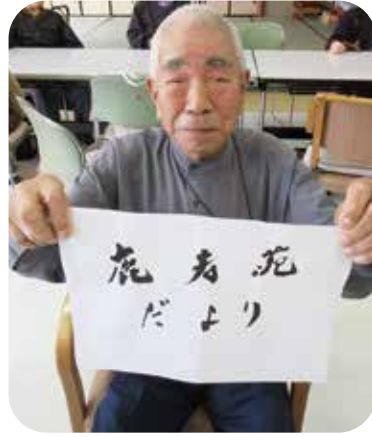 鹿寿苑
だより